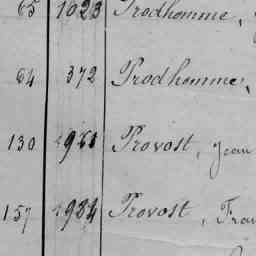 65 1023 Prodhomme,
64 372 Prodhomme,
130 1961 Provost, Jean
157 1934 Provost, Fran